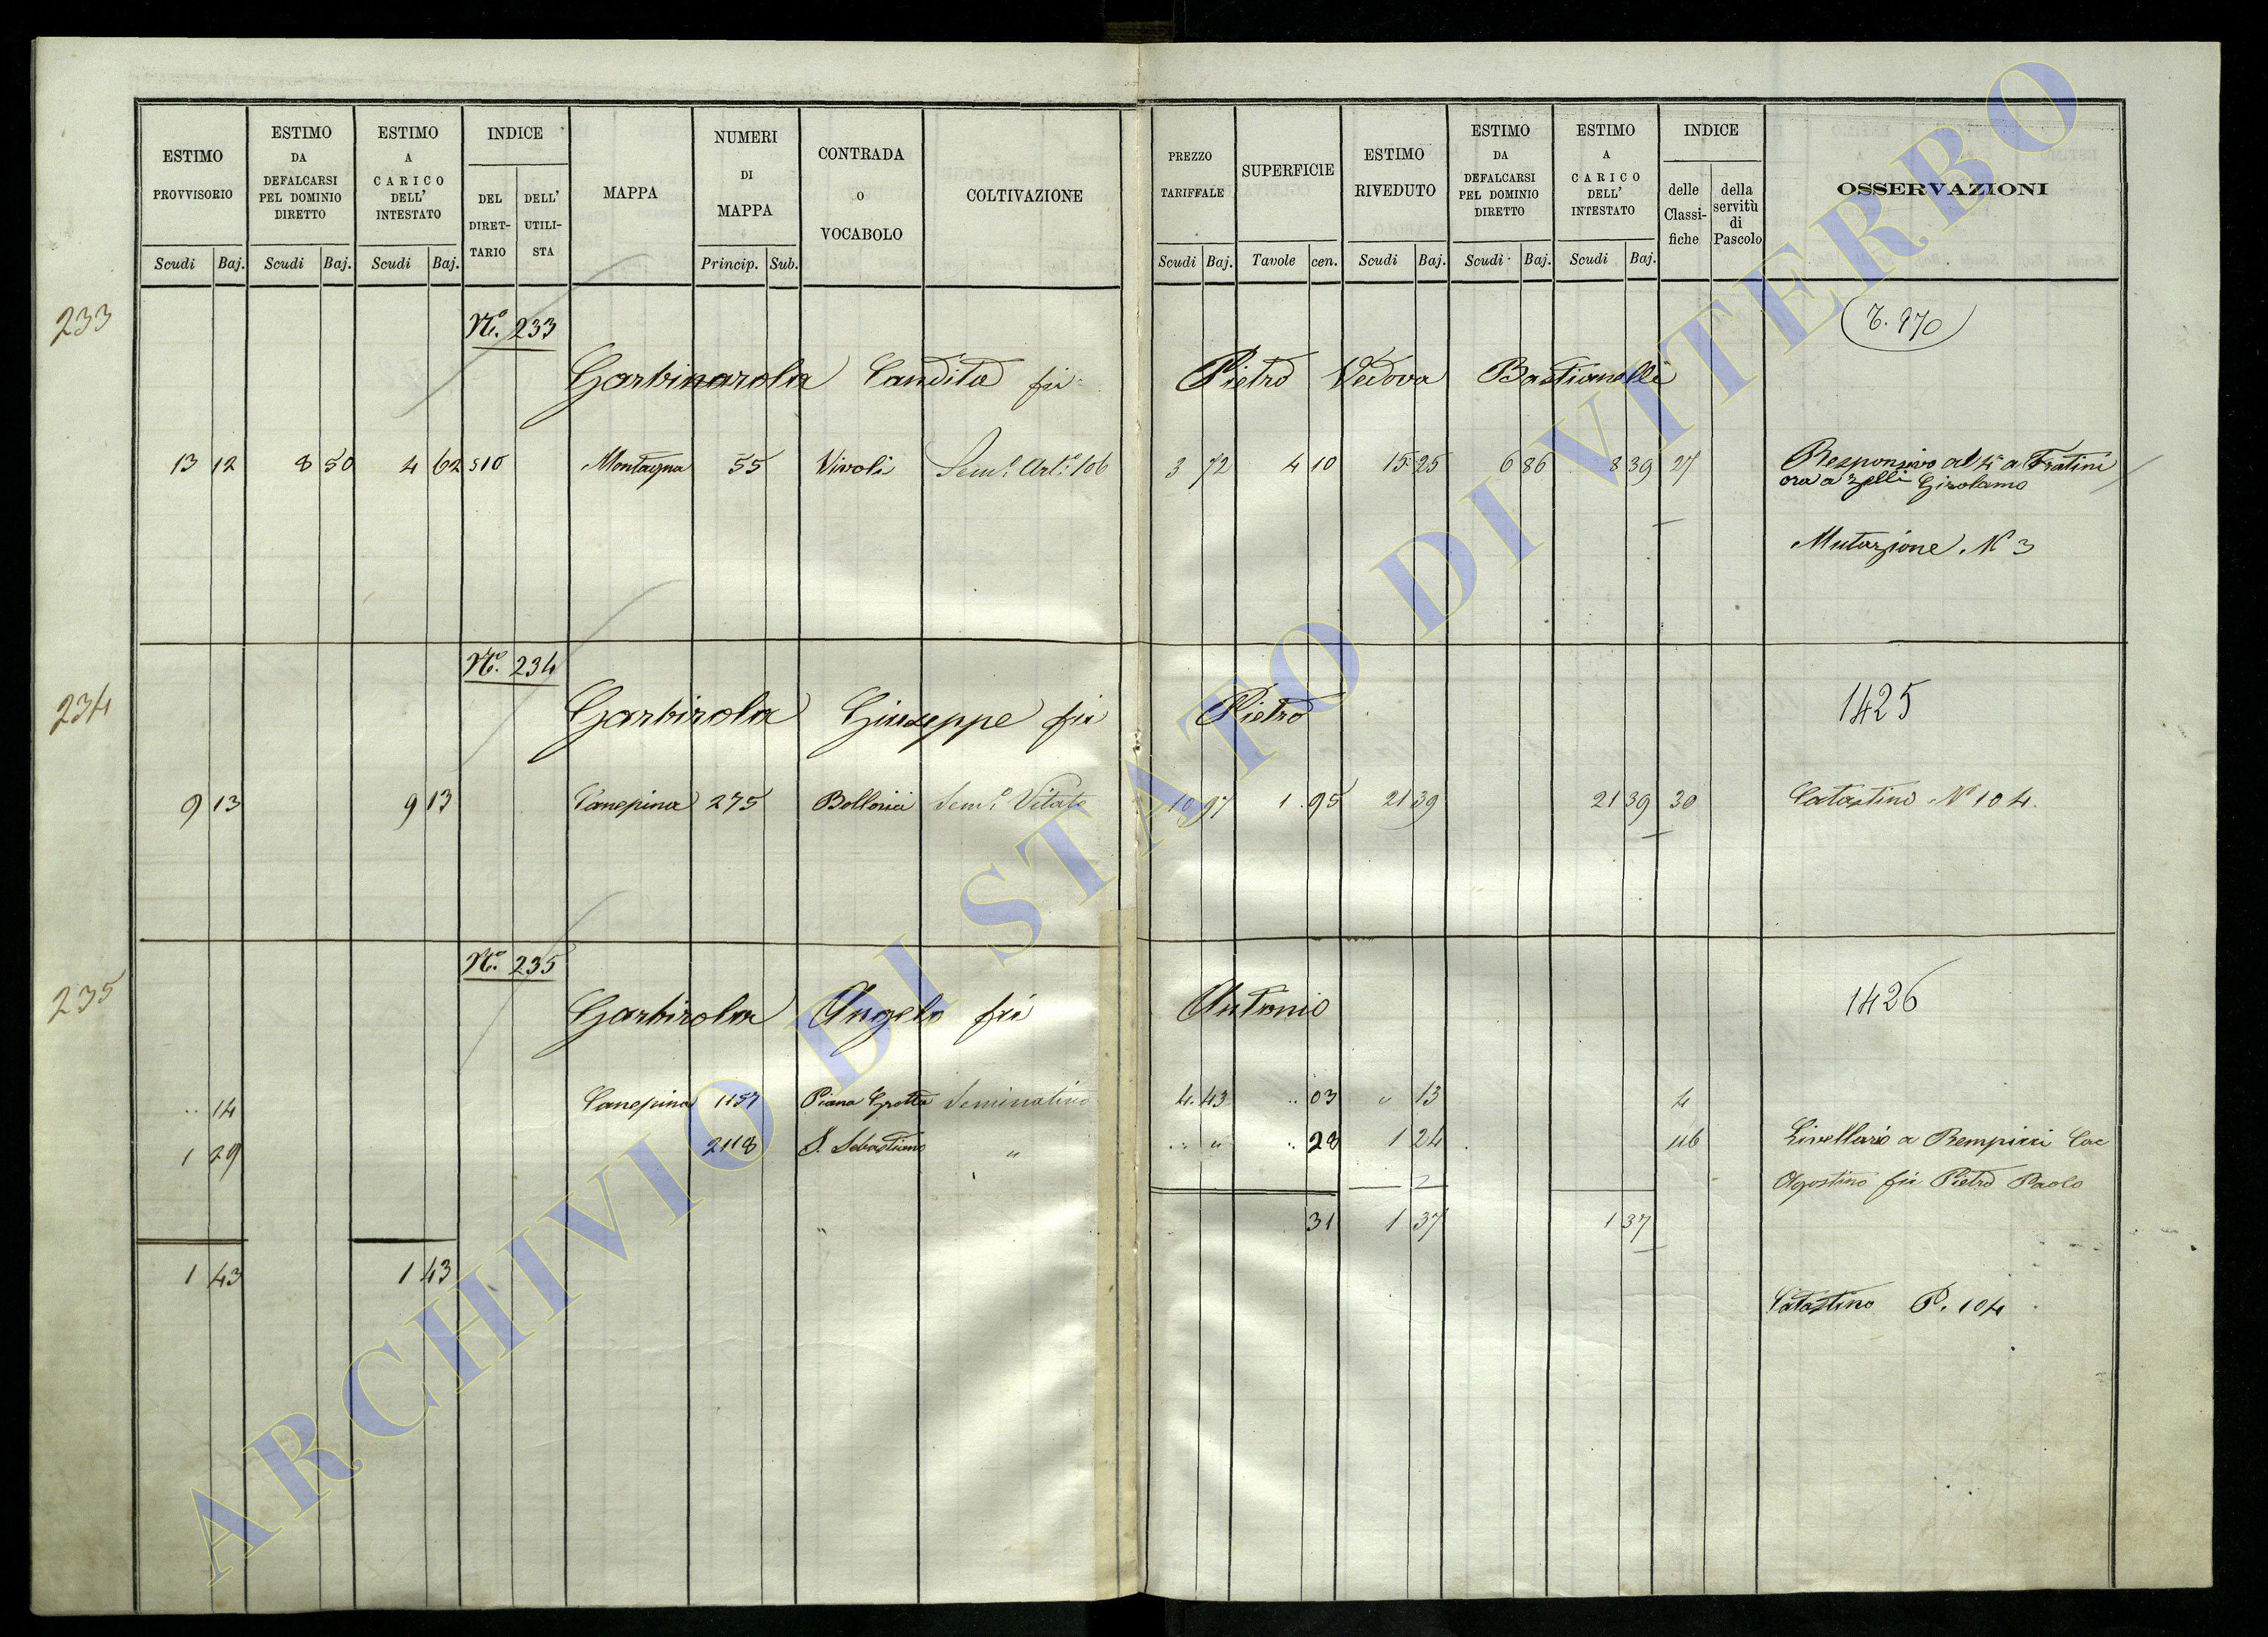 ESTIMO PROVVISORIO Scudi Baj.
ESTIMO DA DEFALCARSI PEL DOMINIO DIRETTO Scudi Baj.
ESTIMO A CARICO DELL' INTESTATO Scudi Baj.
INDICE DEL DIRET-TARIO DELL' UTILI-STA
MAPPA
NUMERI DI MAPPA Princip. Sub.
CONTRADA O VOCABOLO
COLTIVAZIONE
PREZZO TARIFFALE Scudi Baj.
SUPERFICIE Tavole cen.
ESTIMO RIVEDUTO Scudi Baj.
ESTIMO DA DEFALCARSI PEL DOMINIO DIRETTO Scudi Baj.
ESTIMO A CARICO DELL' INTESTATO Scudi Baj.
INDICE delle Classi-fiche della servitù di Pascolo
OSSERVAZIONI
233
N.º 233
Garbinarola Candita fu Pietro Vedova Bastianelli
13 12 8 50 4 62 510 Montagna 55 Vivoli Sem.º Art.º 106 3 72 4 10 15 25 6 86 8 39 27 Responsivo al 4º a Fratini
ora a Zelli Girolamo
Mutazione N 3
234
N.º 234
Garbirola Giuseppe fu Pietro
1425
9 13 9 13 Canepina 275 Sem.º Vitato 10 97 1 95 21 39 21 39 30 Catastino N 104.
235
N.º 235
Garbirola Angelo fu Antonio
1426
14 Canepina 1157 Piana Grotta Seminativo 4 43 03 " 13 4
1 29 2118 S. Sebastiano " " 28 1 24 Livellario a
Agostino fu Pietro Paolo
31 1 37 1 37
1 43 1 43
Catastino P. 104
ARCHIVIO DI STATO DI VITERBO